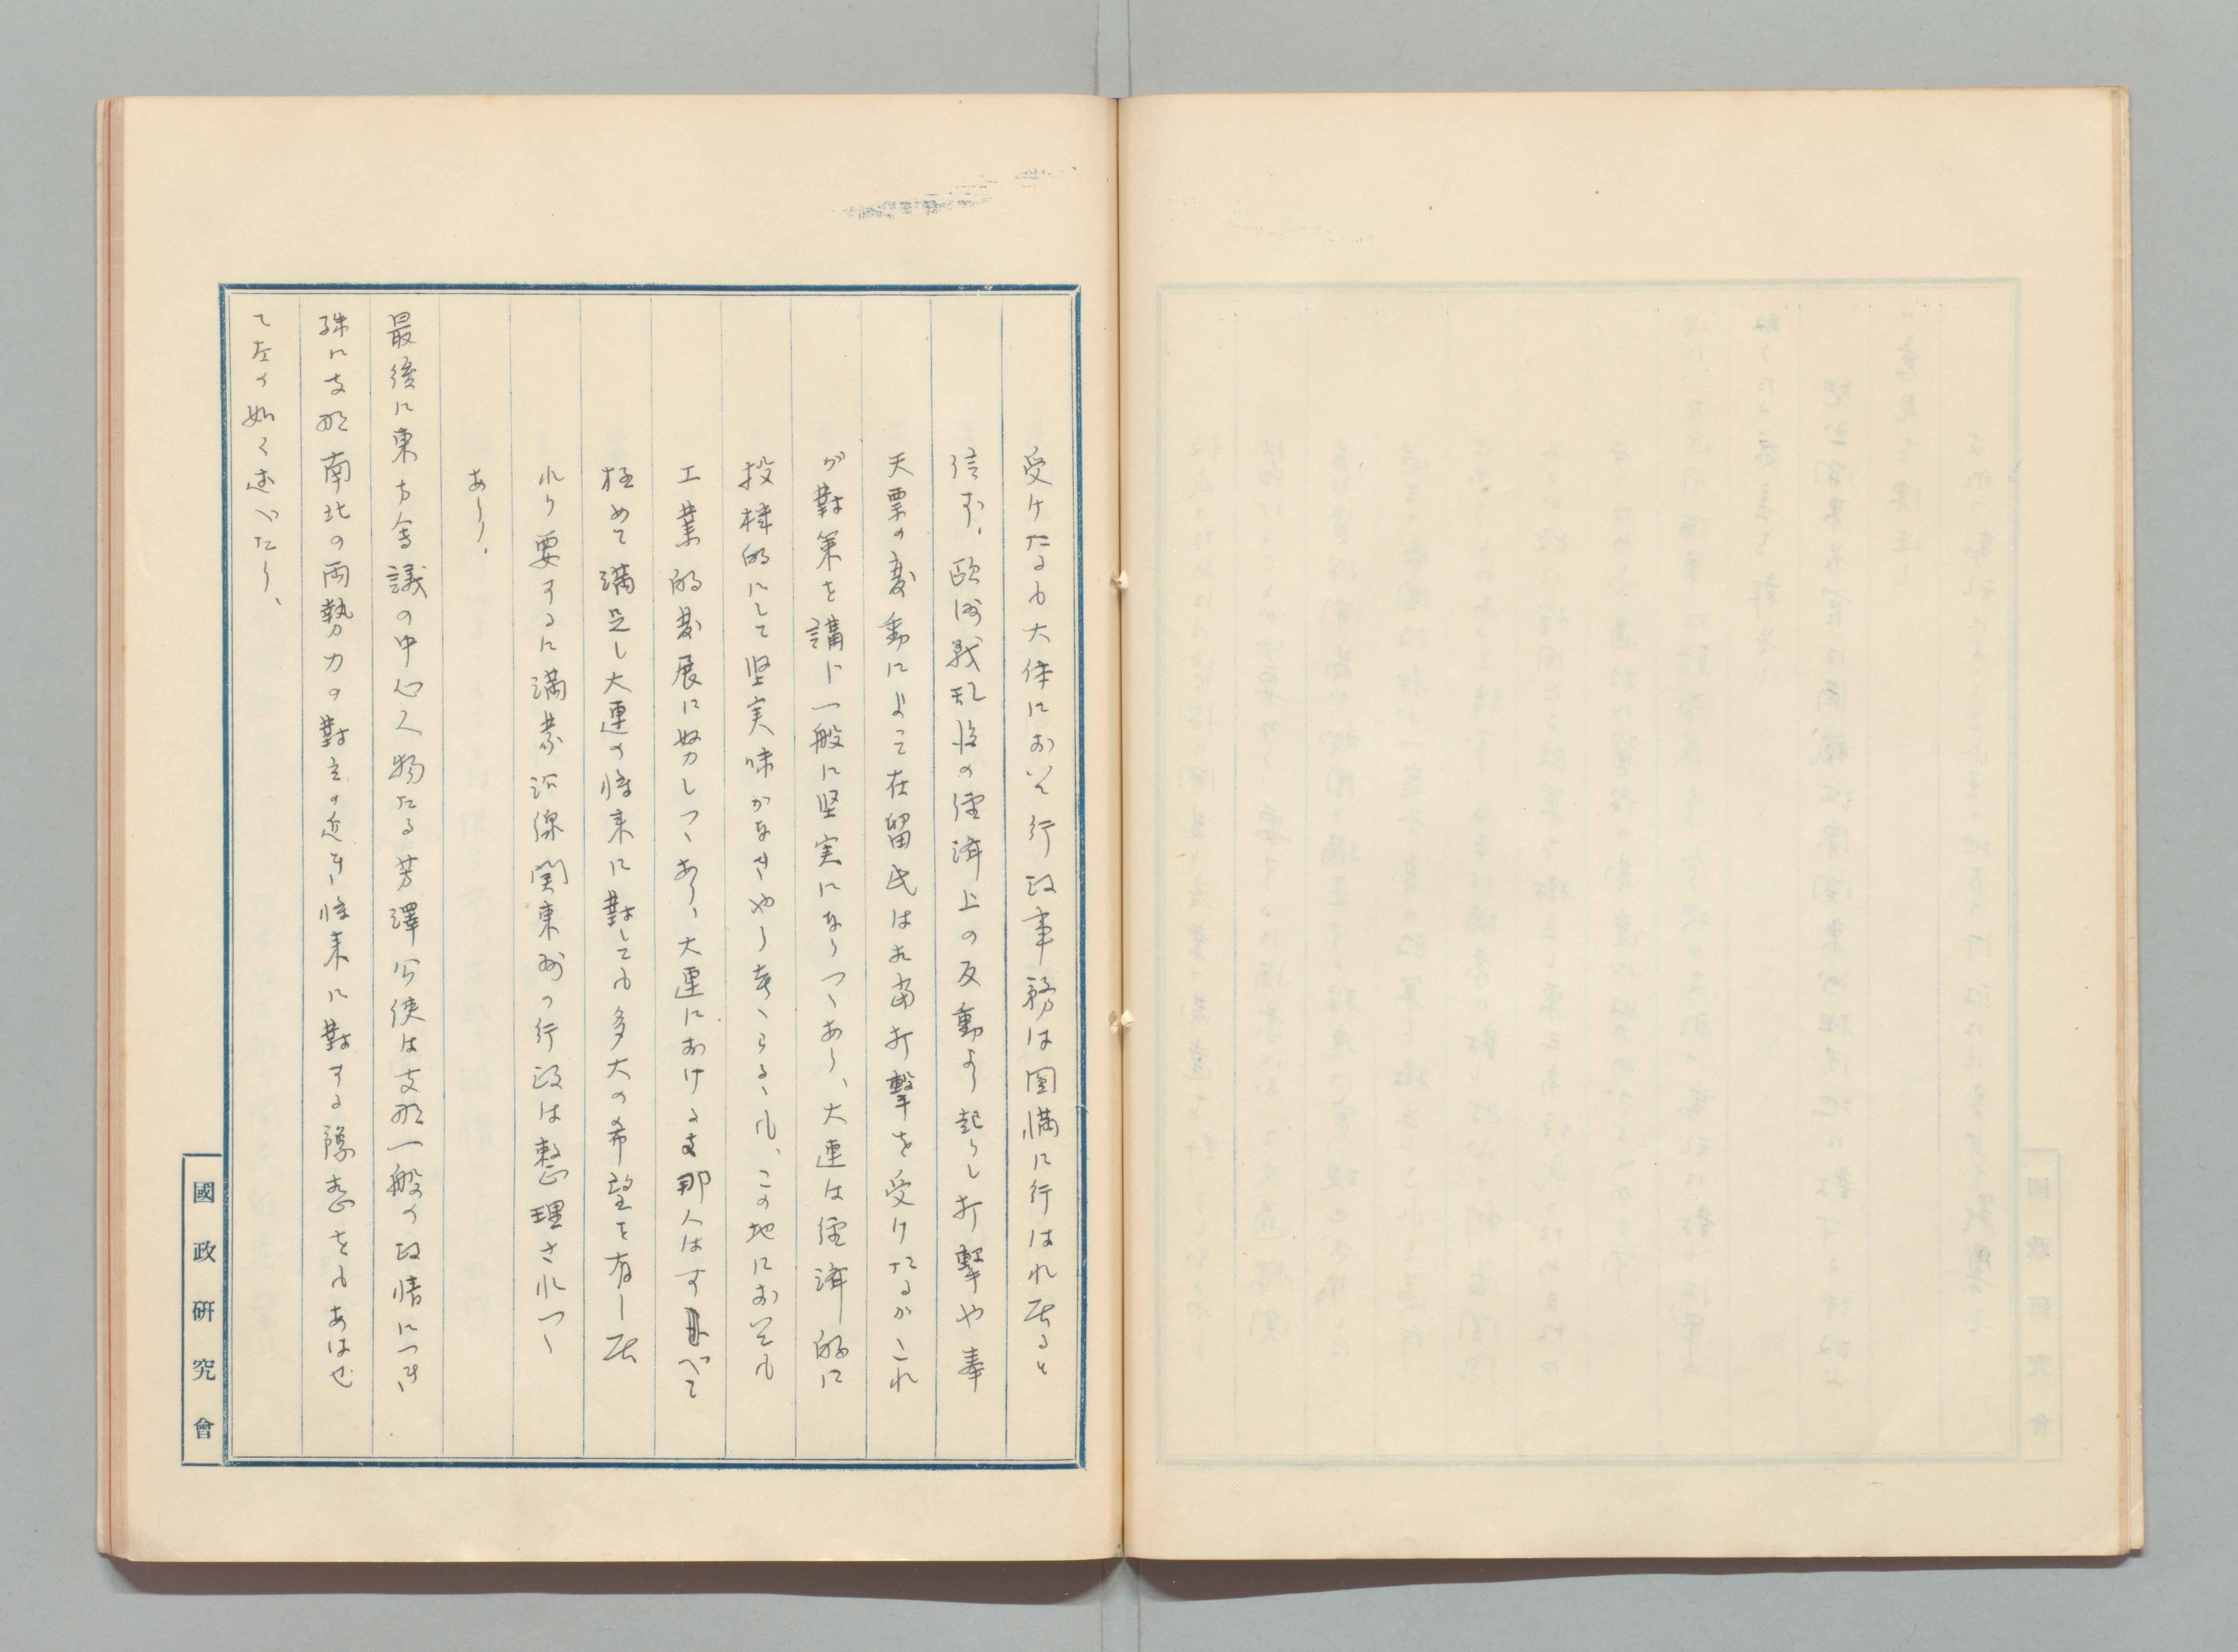 受けたるも大体において行政事務は圓満に行はれ居ると
信ず、欧洲戦乱後の経済上の反動より起りし打撃や奉
天票の変動によって在留民は相当打撃を受けたるがこれ
が對策を講じ一般に堅実になりつゝあり、大連は経済的に
投機的にして堅実味がなきやう考へらるゝも、この地においても
工業的発展に努力しつゝあり、大連における支那人はすべて
極めて満足し大連の将来に對しても多大の希望を有し居
れり要するに満蒙沿線関東州の行政は整理されつゝ
あり、
最後に東方会議の中心人物たる芳澤公使は支那一般の政情につき
殊に支那南北の両勢力の對立の近き将来に對する豫想をもあはせ
て左の如く述べたり、
國政研究會